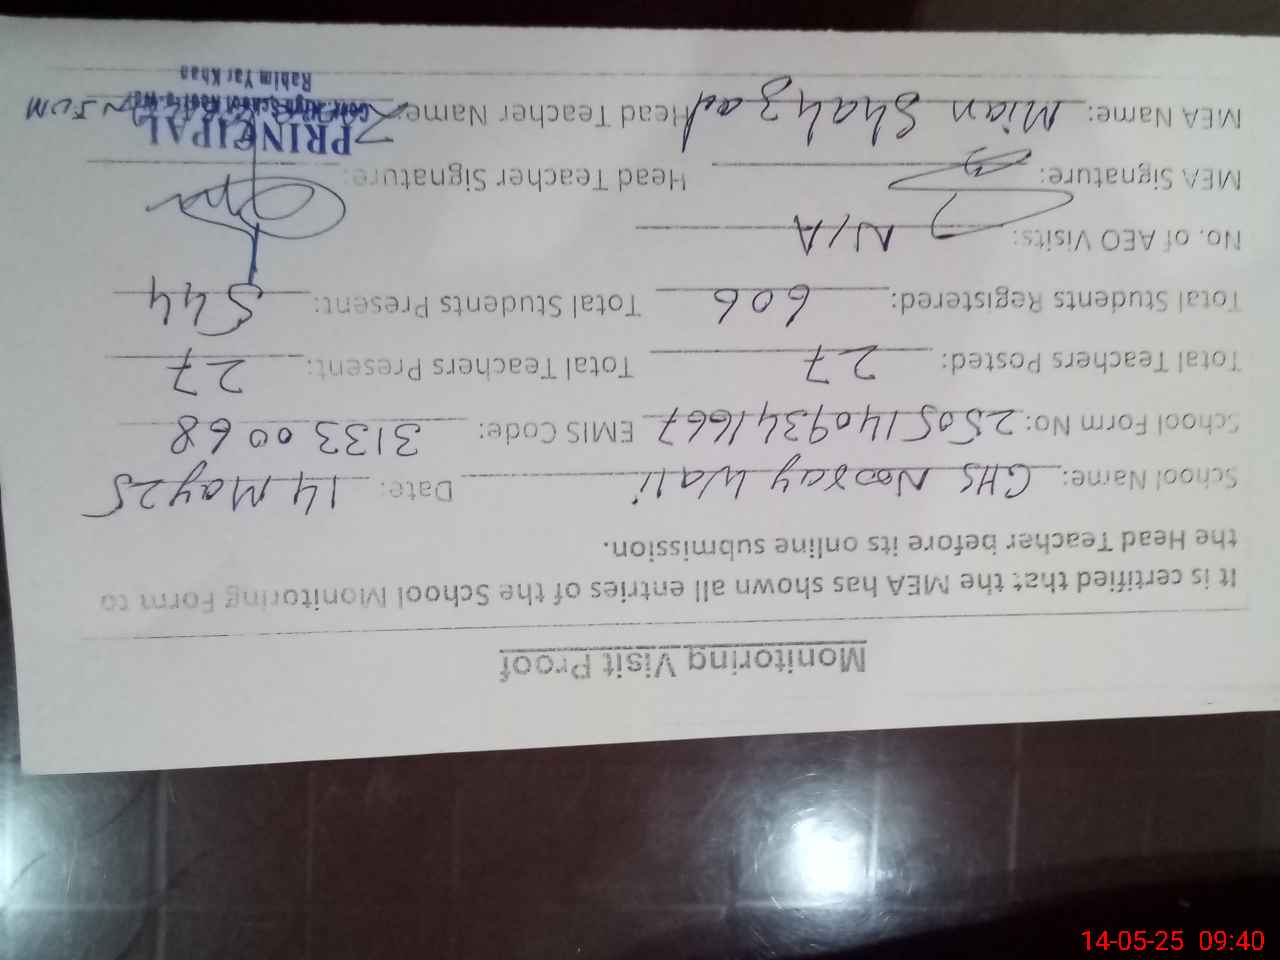 Monitoring Visit Proof
It is certified that the MEA has shown all entries of the School Monitoring Form to
the Head Teacher before its online submission.
School Name: GHS Nooray Wali Date: 14 May 25
School Form No: 2505140934 1667 EMIS Code: 31330068
Total Teachers Posted: 27 Total Teachers Present: 27
Total Students Registered: 606 Total Students Present: 544
No. of AEO Visits: N/A
MEA Signature: Head Teacher Signature:
MEA Name: Mian Shahzad Head Teacher Name:
PRINCIPAL
Rahim Yar Khan
14-05-25 09:40